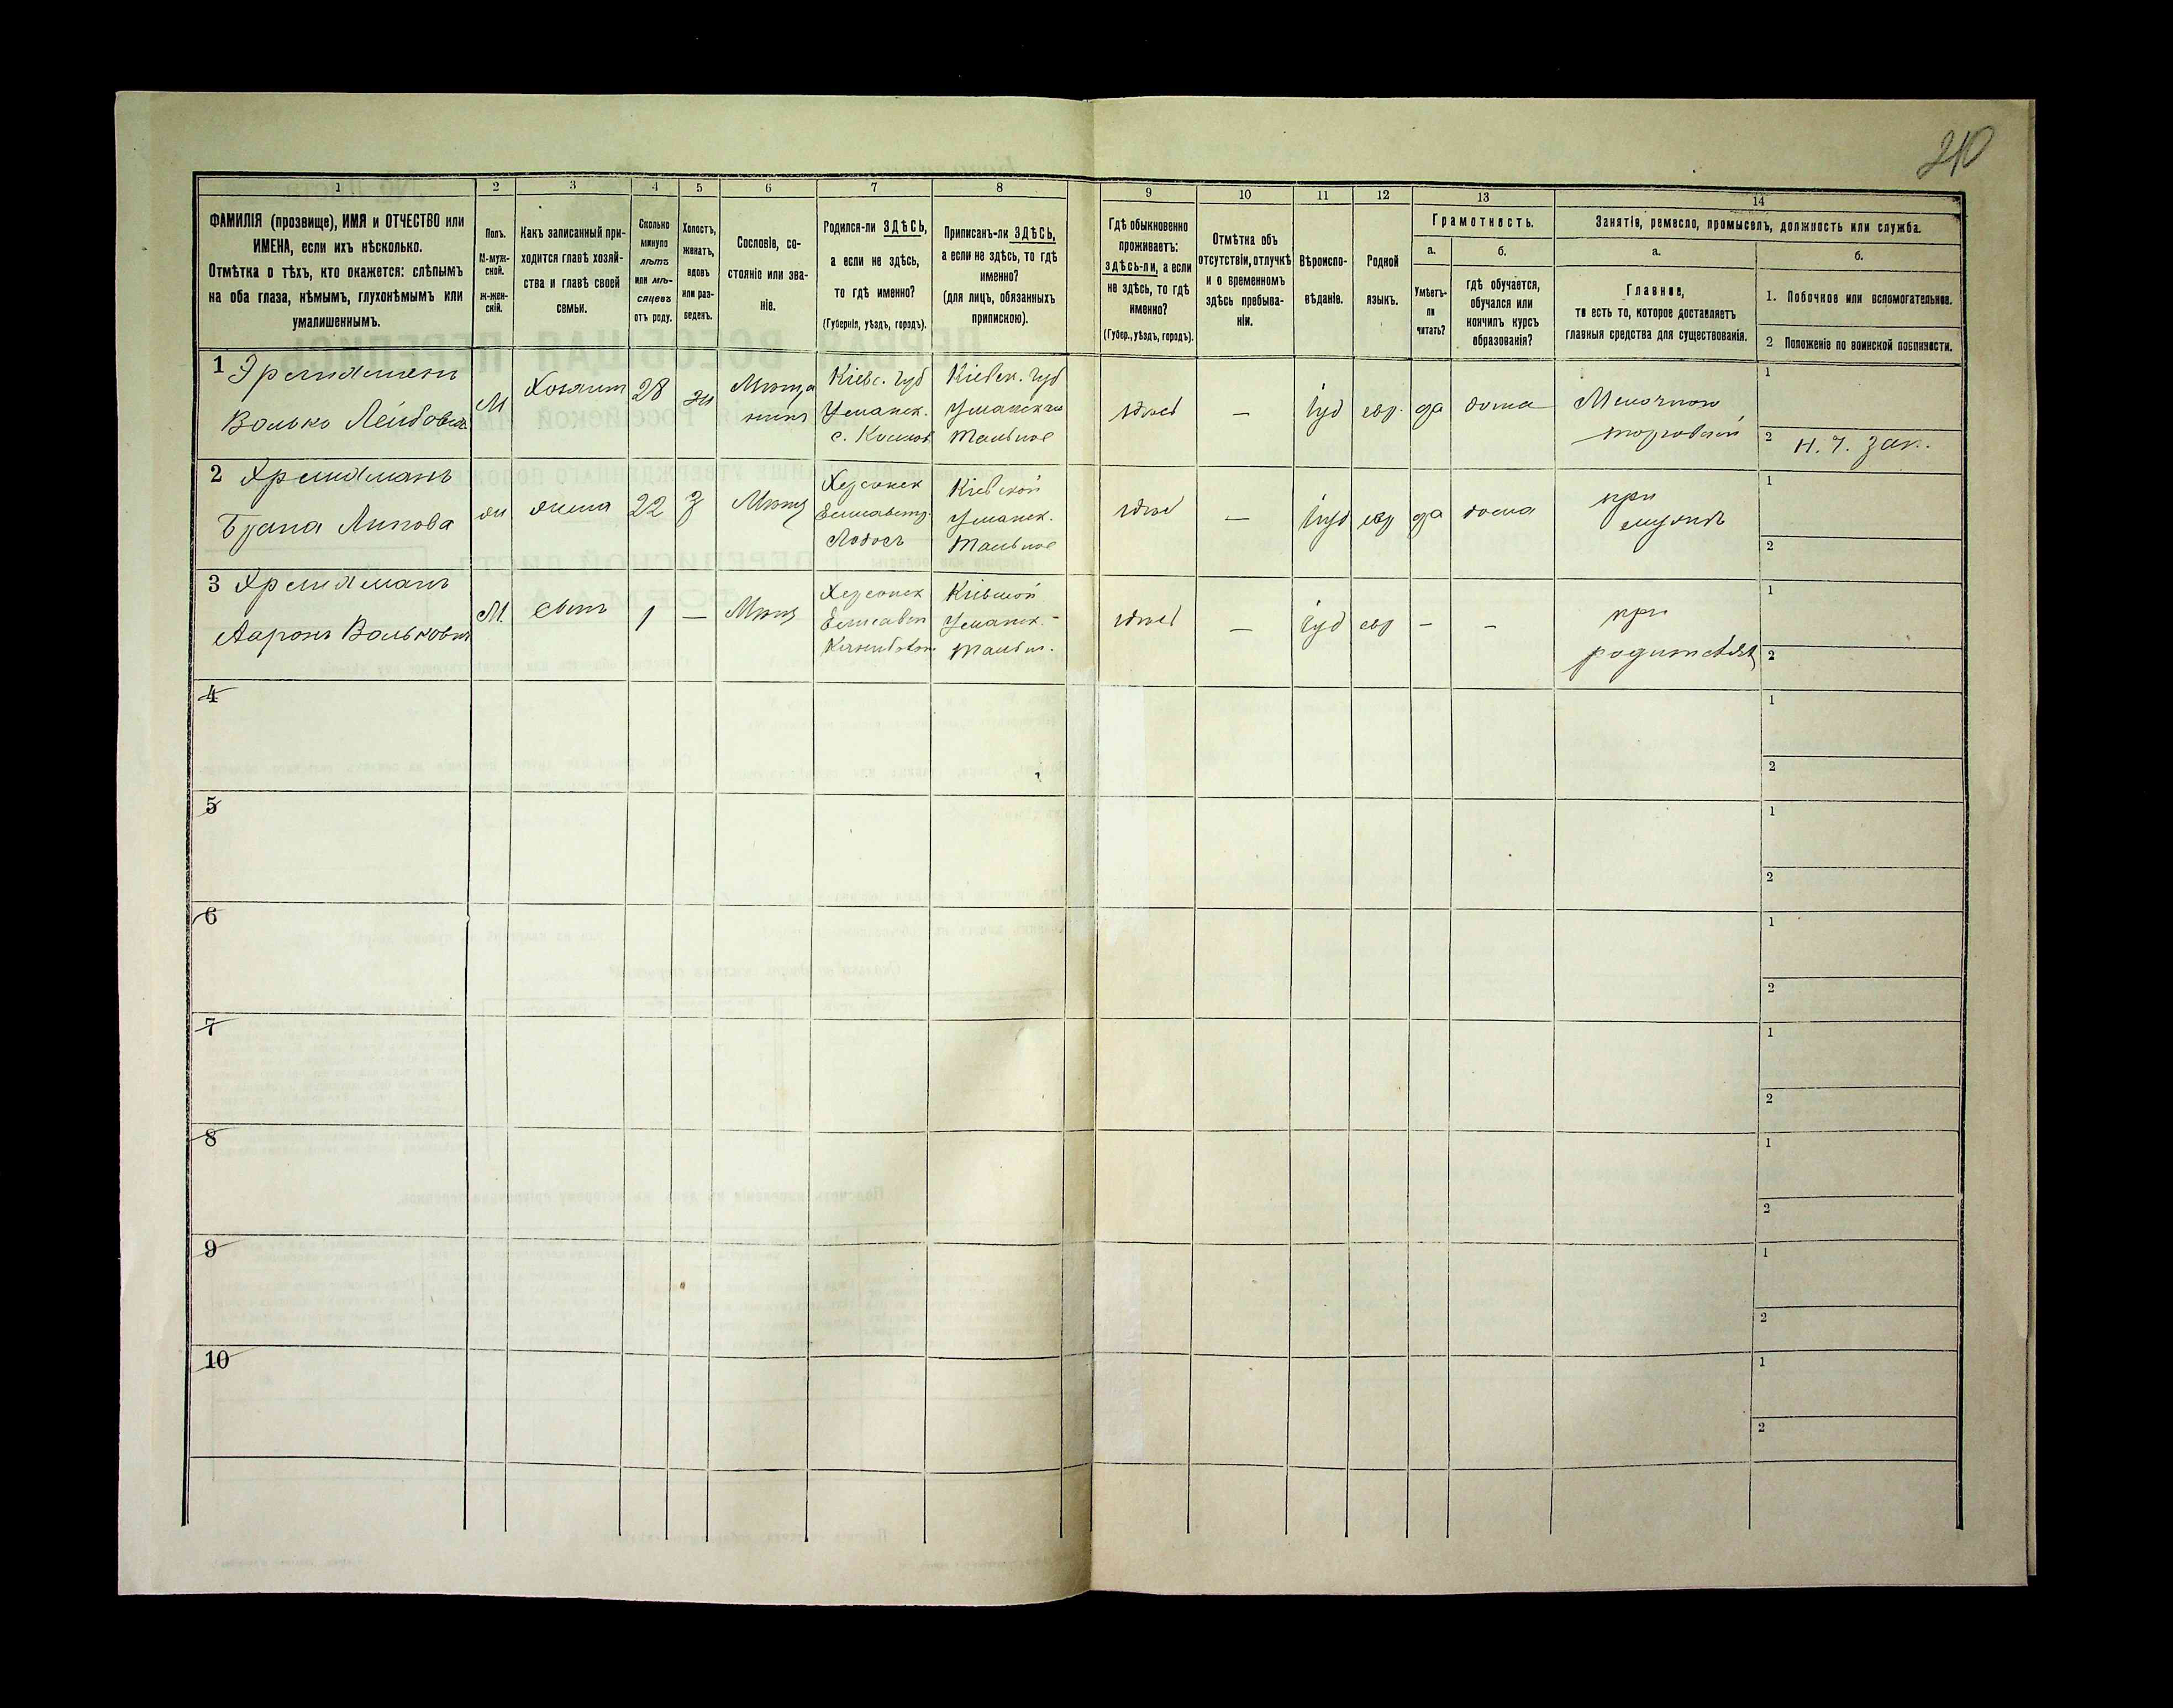 210
1 2 3 4 5 6 7 8 9 10 11 12 13 14
ФАМИЛІЯ (прозвище), ИМЯ и ОТЧЕСТВО или
ИМЕНА, если ихъ нѣсколько.
Отмѣтка о тѣхъ, кто окажется: слѣпымъ
на оба глаза, нѣмымъ, глухонѣмымъ или
умалишеннымъ.
Полъ.
М-муж-
ской.
Ж-жен-
скій.
Какъ записанный при-
ходится главѣ хозяй-
ства и главѣ своей
семьи.
Сколько
минуло
лѣтъ
или мѣ-
сяцевъ
отъ роду.
Холостъ,
женатъ,
вдовъ
или раз-
веденъ.
Сословіе, со-
стояніе или зва-
ніе.
Родился-ли ЗДѢСЬ,
а если не здѣсь,
то гдѣ именно?
(Губернія, уѣздъ, городъ).
Приписанъ-ли ЗДѢСЬ,
а если не здѣсь, то гдѣ
именно?
(для лицъ, обязанныхъ
припискою).
Гдѣ обыкновенно
проживаетъ:
здѣсь-ли, а если
не здѣсь, то гдѣ
именно?
(Губер., уѣздъ, городъ).
Отмѣтка объ
отсутствіи, отлучкѣ
и о временномъ
здѣсь пребыва-
ніи.
Вѣроиспо-
вѣданіе.
Родной
языкъ.
Грамотность.
а.
Умѣетъ-
ли
читать?
б.
гдѣ обучается,
обучался или
кончилъ курсъ
образованія?
Занятіе, ремесло, промыселъ, должность или служба.
а.
Главное,
то есть то, которое доставляетъ
главныя средства для существованія.
б.
1. Побочное или вспомогательное.
2 Положеніе по воинской повинности.
1
Волько Лейбовъ
М
Хозяинъ
28
Мѣща
нинъ
Кіевс. губ
Уманск.
с.
Кіевск. губ
Тальное
здѣсь
—
Іуд
евр.
да
дома
Мелочною
торговлей
1
2 Н. ч. зап.
2
ж
жена
22
Мѣщ
Херсонск
Елисаветг.
Кіевской
Уманск.
Тальное
здѣсь
—
іуд
евр
да
дома
при
мужѣ
1
2
3
Ааронъ Вольковъ
М.
сынъ
1
—
Мѣщ
Херсонск
Елисавет
Кіевской
Уманск.
Тальн.
здѣсь
—
іуд
евр
—
—
при
родителях
1
2
4
1
2
5
1
2
6
1
2
7
1
2
8
1
2
9
1
2
10
1
2